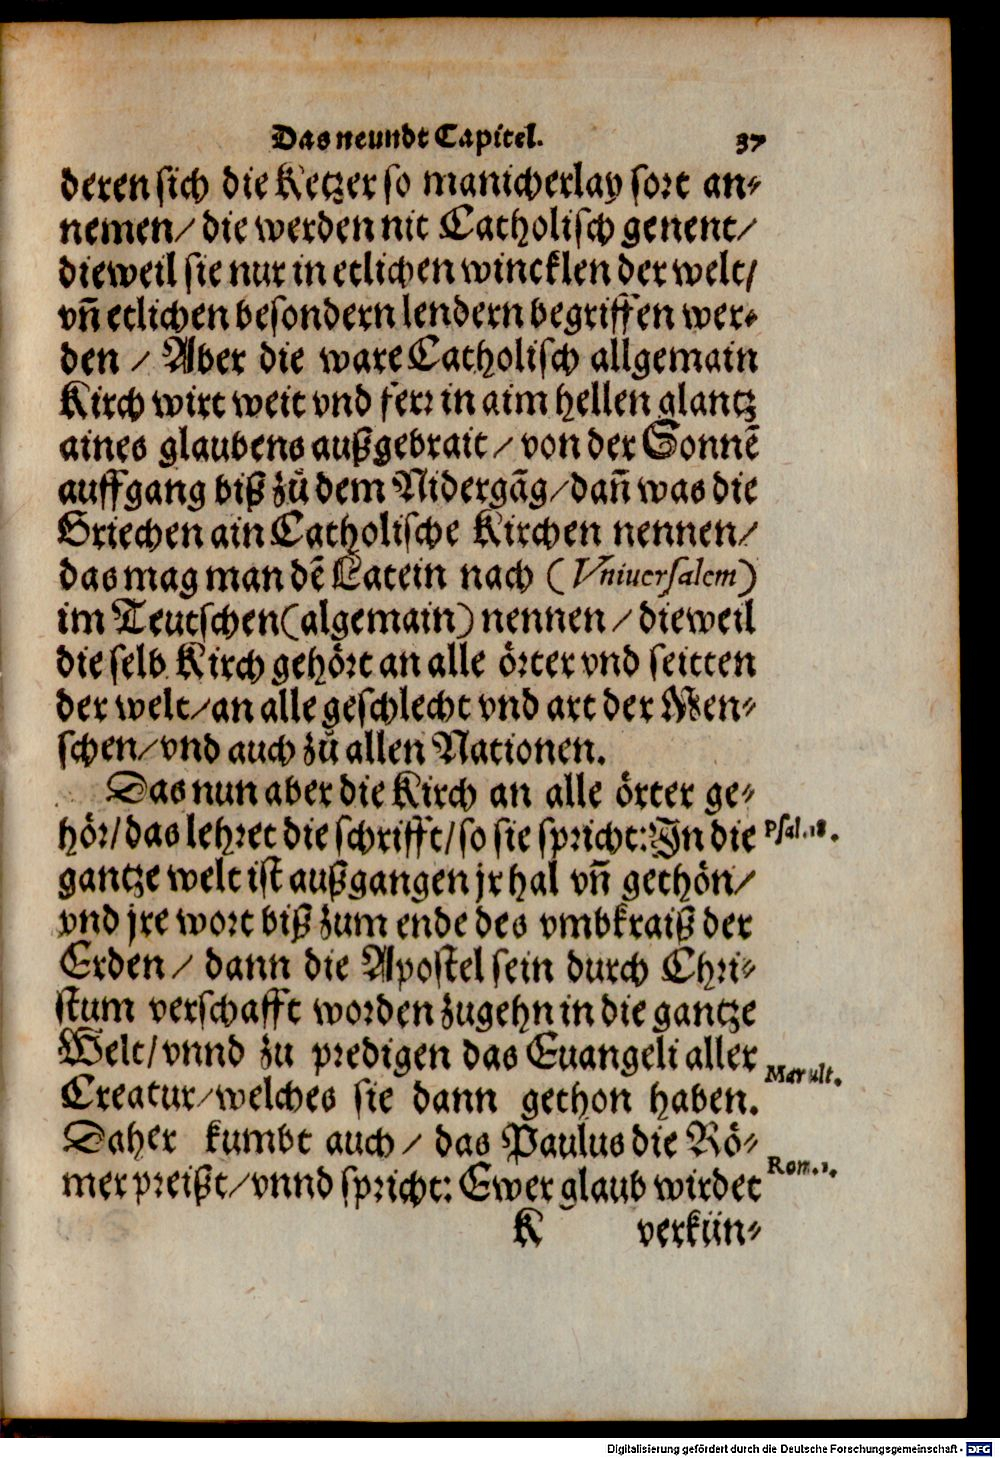 Das neundt Capitel. 37
deren sich die Ketzer so manicherlay sort an-
nemen/ die werden nit Catholisch genent/
dieweil sie nur in etlichen wincklen der welt/
vñ etlichen besondern lendern begriffen wer-
den / Aber die ware Catholisch allgemain
Kirch wirt weit vnd ferr in aim hellen glantz
aines glaubens außgebrait/ von der Sonnẽ
auffgang biß zů dem Nidergãg/ dañ was die
Griechen ain Catholische Kirchen nennen/
das mag man dẽ Latein nach (Vniuersalem)
im Teutschen (algemain) nennen/ dieweil
die selb Kirch gehört an alle örter vnd seitten
der welt/ an alle geschlecht vnd art der Men-
schen/ vnd auch zů allen Nationen.
Das nun aber die Kirch an alle örter ge-
hör/ das lehret die schrifft/ so sie spricht: In die Psal.18.
gantze welt ist außgangen jr hal vñ gethön/
vnd jre wort biß zum ende des vmbkraiß der
Erden/ dann die Apostel sein durch Chri-
stum verschafft worden zugehn in die gantze
Welt/ vnnd zu predigen das Euangeli aller Mar.ult.
Creatur/ welches sie dann gethon haben.
Daher kumbt auch/ das Paulus die Rö-
mer preißt/ vnnd spricht: Ewer glaub wirdet Rom.1.
K verkün-
Digitalisierung gefördert durch die Deutsche Forschungsgemeinschaft - DFG